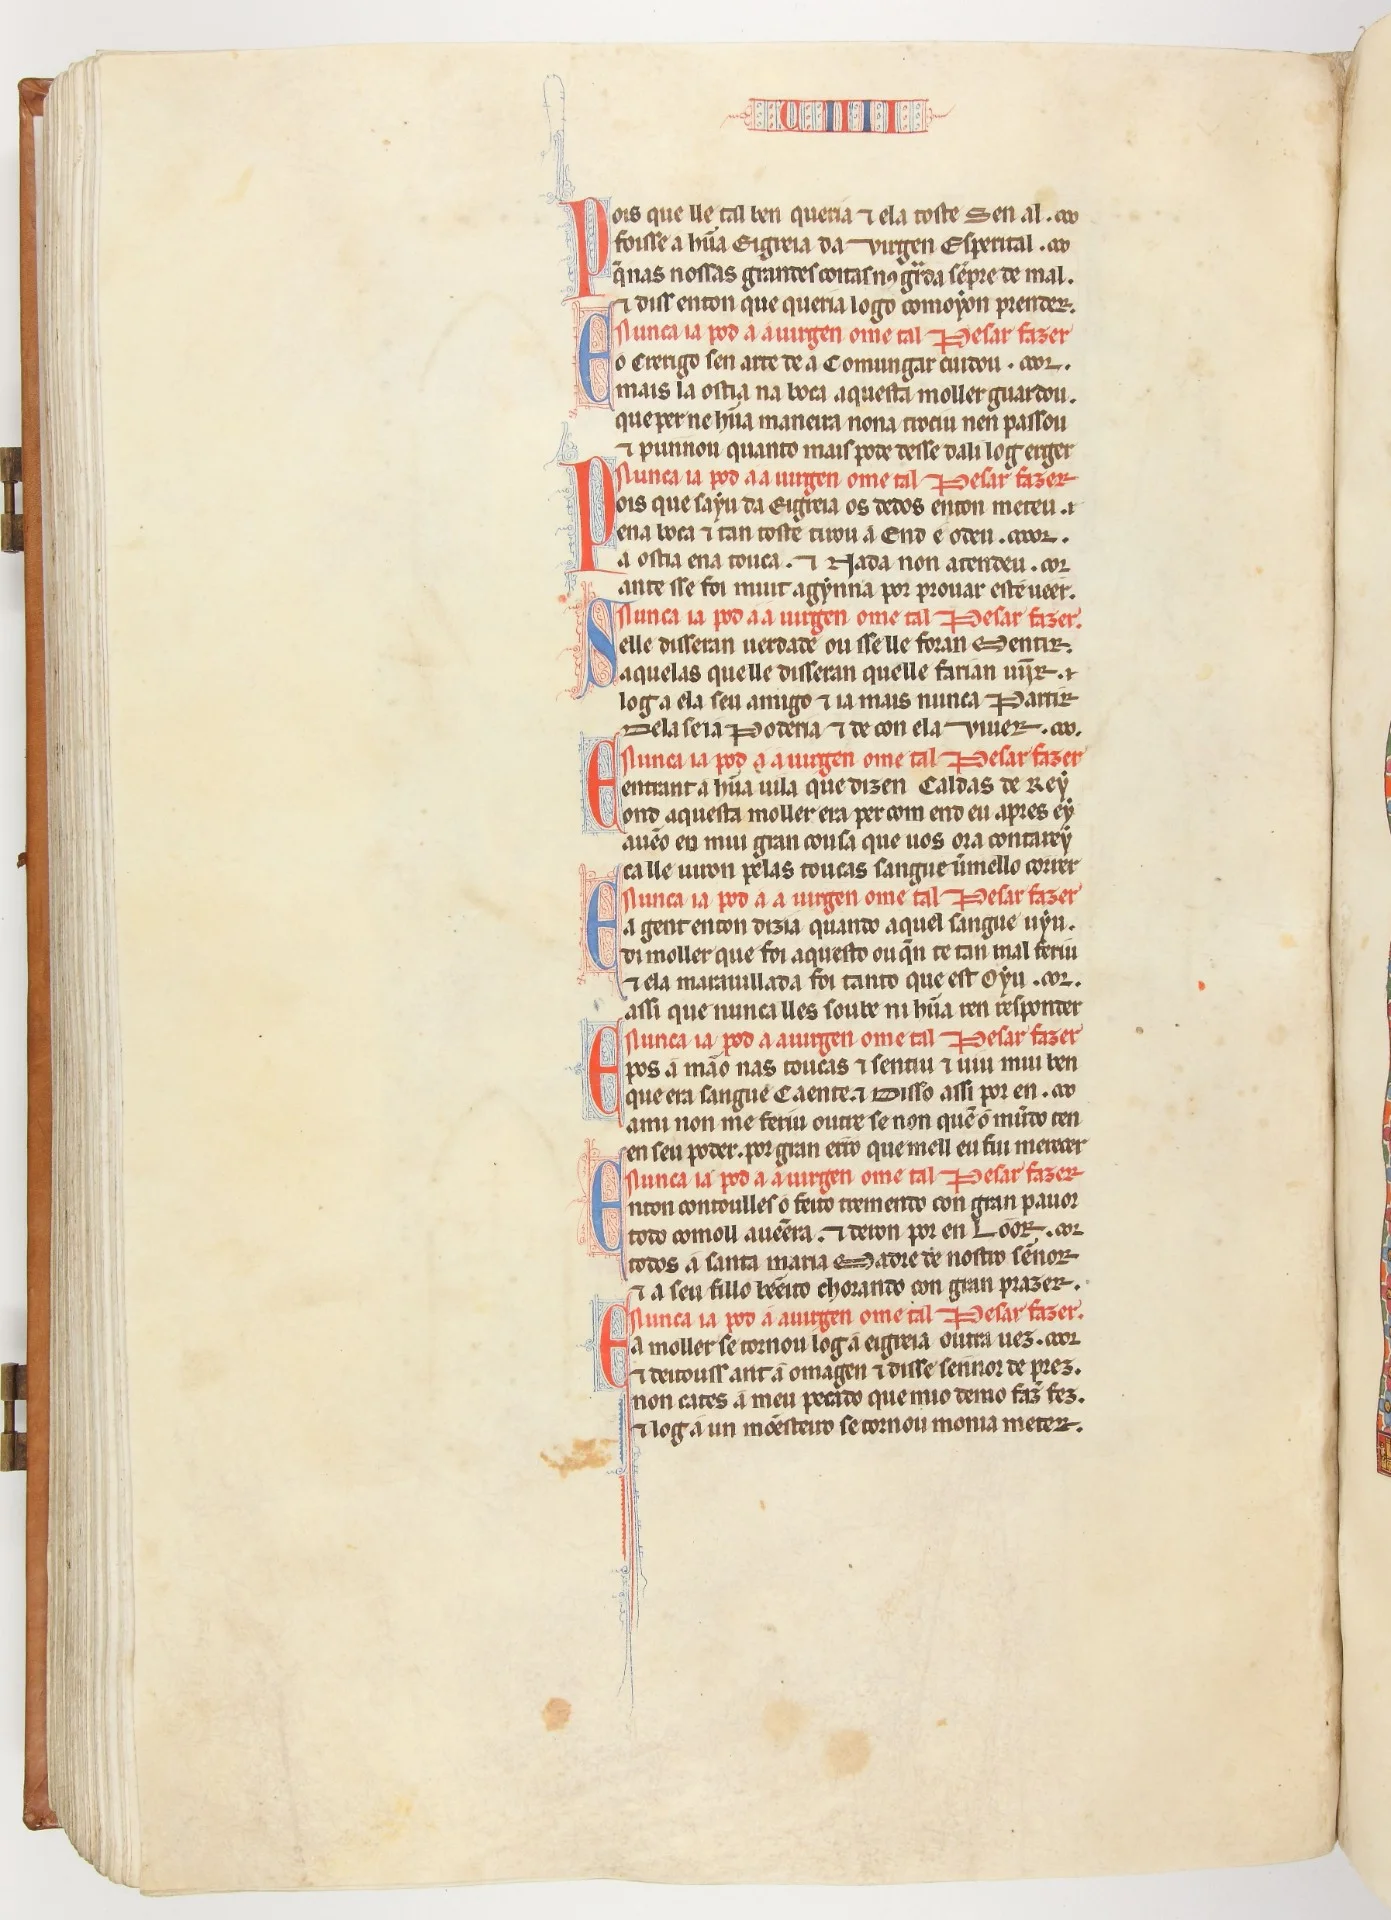 C IIII
Pois que lle tal ben queria ⁊ ela toste Sen al .
foisse a hũa Eigreia da Virgen Esperital .
q̃nas nossas grandes coitas nos guarda sẽpre de mal.
⁊ diss enton que queria logo comoyon prender.
Nunca ia pod a a uirgen ome tal Pesar fazer
Eo Crerigo sen arte de a Comungar cuidou .
mais la ostia na boca aquesta moller guardou.
que per ne hũa maneira nona trociu nen passou
⁊ punnou quanto mais pode desse dali log erger
Nunca ia pod a a uirgen ome tal Pesar fazer
Pois que sayu da Eigreia os dedos enton meteu .
ena boca ⁊ tan toste tirou a End e odeu .
a ostia ena touca . ⁊ Nada non atendeu .
ante sse foi muit agynna por prouar este ueer.
Nunca ia pod a a uirgen ome tal Pesar fazer.
Selle disseran uerdade ou sse lle foran Mentir.
aquelas que lle disseran quelle farian uĩjr .
log a ela seu amigo ⁊ ia mais nunca Partir
Dela se ia Poderia ⁊ de con ela Viuer .
Nunca ia pod a a uirgen ome tal Pesar fazer
Eentrant a hũa uila que dizen Caldas de Rey
ond aquesta moller era per com end eu apres ey
auẽo en mui gran cousa que uos ora contarey
ca lle uiron pelas toucas sangue ũmello correr
Nunca ia pod a a uirgen ome tal Pesar fazer
Ea gent enton dizia quando aquel sangue uyu.
di moller que foi aquesto ou q̃n te tan mal feriu
⁊ ela marauillada foi tanto que est Oyu .
assi que nunca lles soube ni hũa ren responder
Nunca ia pod a a uirgen ome tal Pesar fazer
Epos a mão nas toucas ⁊ sentiu ⁊ uiu mui ben
que era sangue Caente. ⁊ Disso assi por en .
ami non me feriu outre se non quẽ o mũdo ten
en seu poder. por gran erro que mell eu fiu merecer
Nunca ia pod a a uirgen ome tal Pesar fazer
Enton contoulles o feito tremendo con gran pauor
todo comoll auẽera . ⁊ deron por en Loor .
todos a santa maria Madre de nostro señor
⁊ a seu fillo bẽeito chorando con gran prazer.
Nunca ia pod a a uirgen ome tal Pesar fazer.
Ea moller se tornou log a eigreia outra uez .
⁊ deitouss ant a omagen ⁊ disse sennor de prez.
non cates a meu pecado que mio demo faz fez.
⁊ log a un mõesteiro se tornou monia meter.